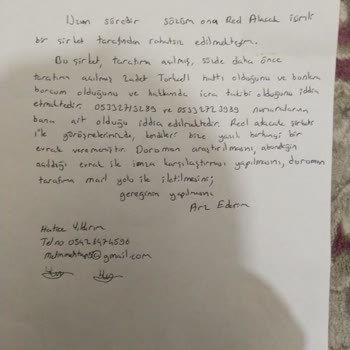 Uzun süredir sözüm ona Red Alacak isimli
bir şirket tarafından rahatsız edilmekteyim.
Bu şirket, tarafıma açılmış, sözde daha önce
tarafıma açılmış 2 adet Turkcell hattı olduğunu ve bunların
borcum olduğunu ve hakkımda icra takibi olduğunu iddia
etmektedir. 05332713289 ve 05332723989 numaraların
bana ait olduğu iddia edilmektedir. Red alacak şirketi
ile görüşmelerimizde, kendileri bize yazılı herhangi bir
evrak verememiştir. Durumun araştırılmasını, aboneliğin
açıldığı evrak ile imza karşılaştırması yapılmasını, durumun
tarafıma mail yolu ile iletilmesini;
gereğinin yapılmasını
Arz Ederim
Hatice Yıldırım
Tel no 05428474596
@gmail.com